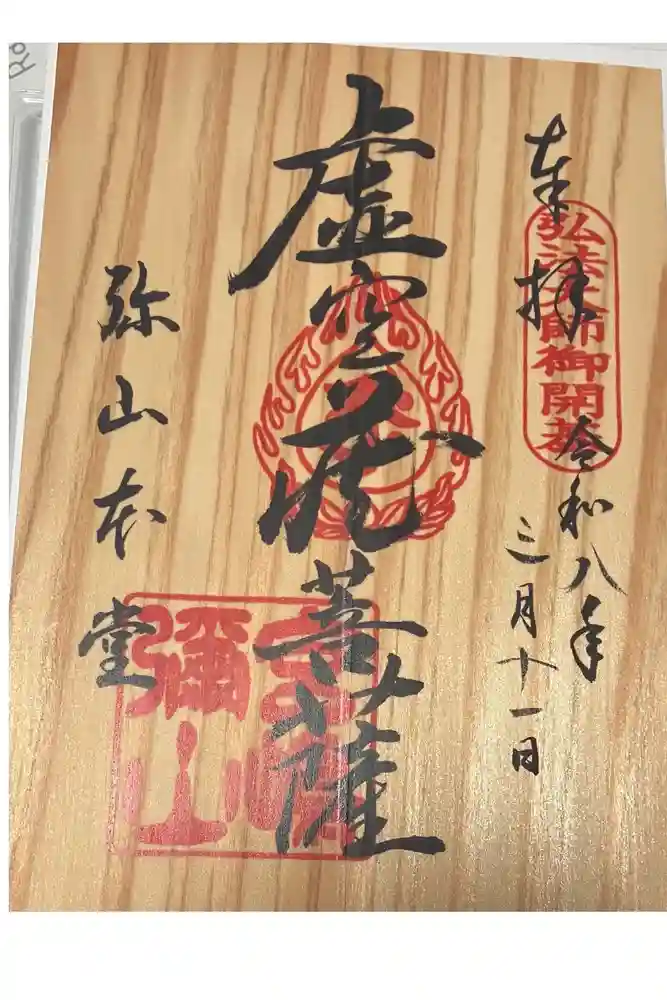 奉拝
弘法大師御開基
令和八年
三月十一日
虚空蔵菩薩
弥山本堂
宮嶋
彌山